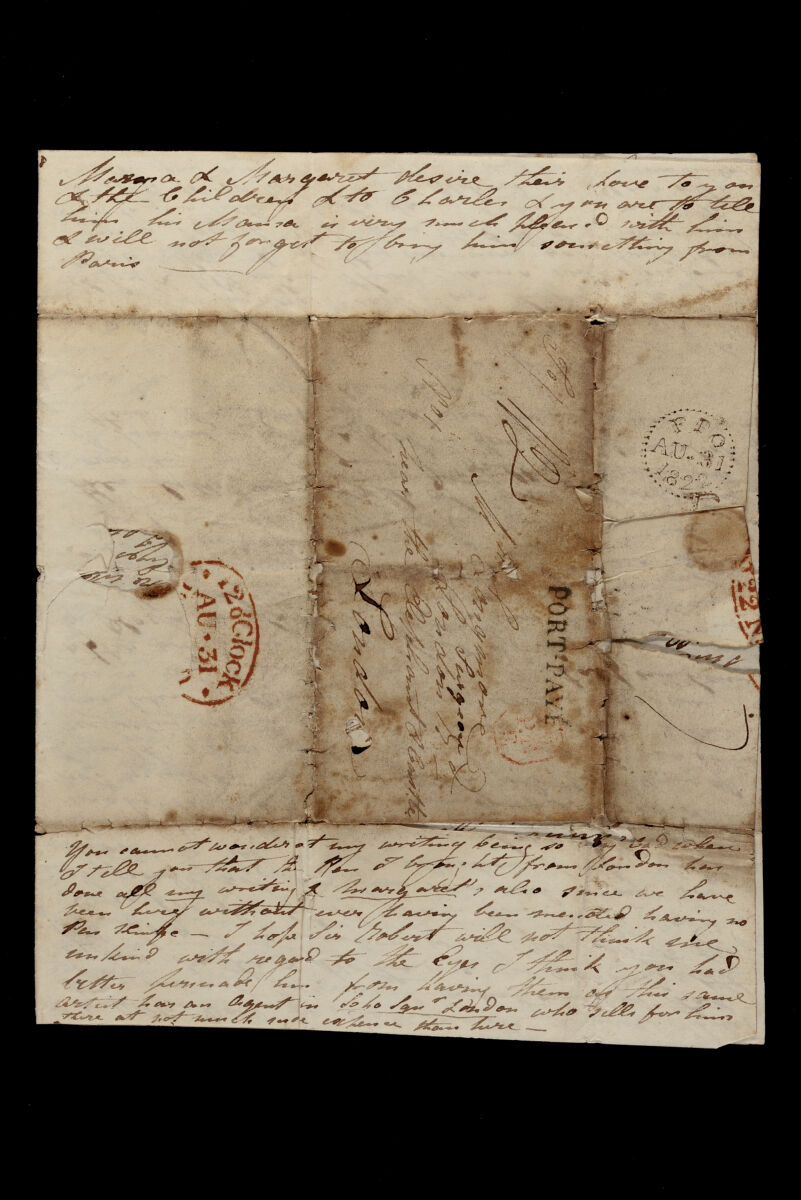 Mama & Margaret desire their love to you
& the Children & to Charles & you are to tell
him his Mama is very much pleased with him
& will not forget to bring him something from
Paris
FPO
AU. 31
1822
12 o'Clock
AU. 31
22 N
PORT PAYÉ
Longmore
Surgeon
London
near the Elephant & Castle
London
You cannot wonder at my writing being so very bad when
I tell you that the Pen I brought from London has
done all my writing & Margaret's also since we have
been here without ever having been mended having no
Pen Knife — I hope Sir Robert will not think me
unkind with regard to the Eyes I think you had
better persuade him from having them as this same
artist has an Agent in Soho Sqr. London who sells for him
there at not much more expence than here —